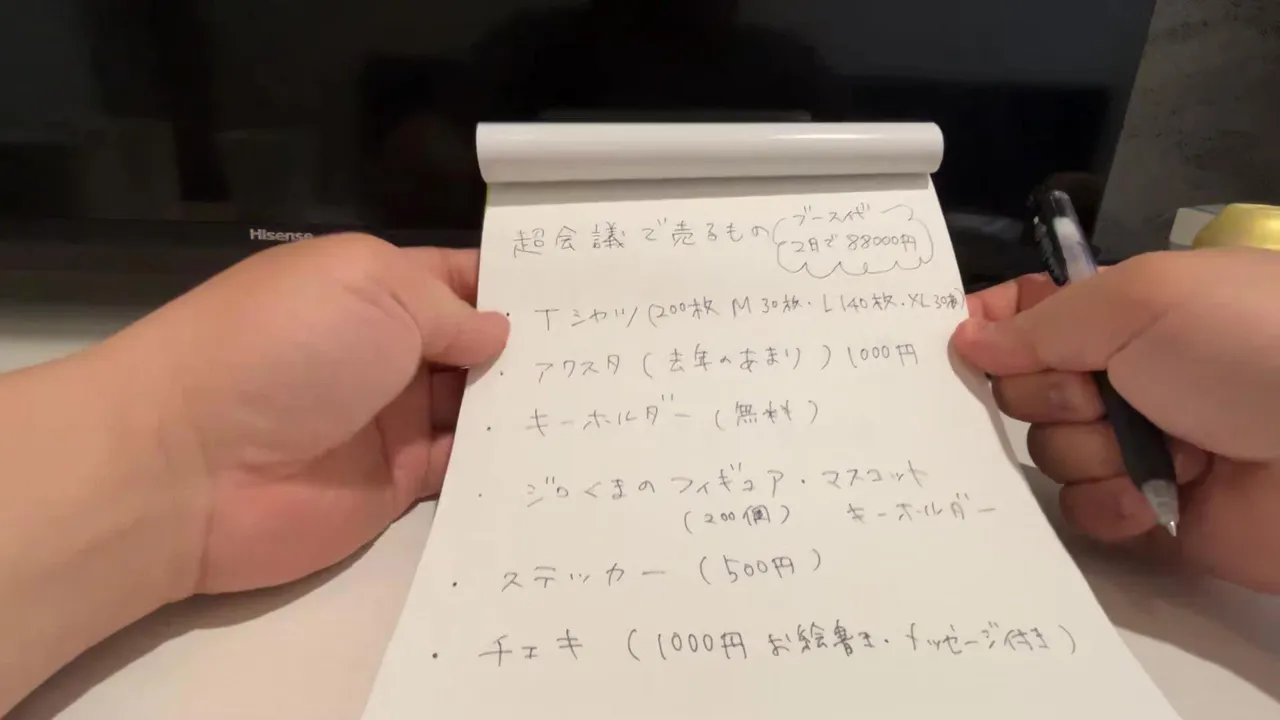 Hisense
超会議で売るもの
ブース代
2日で88000円
・Tシャツ(200枚 M30枚・L140枚・XL30枚)
・アクスタ(去年のあまり)1000円
・キーホルダー(無料)
・ジロくまのフィギュア・マスコット
(200個) キーホルダー
・ステッカー(500円)
・チェキ(1000円 お絵書き・メッセージ付き)